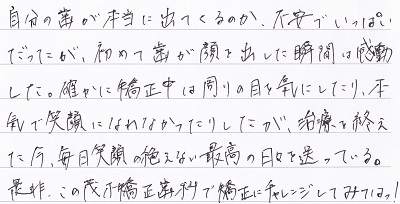 自分の歯が本当に出てくるのか、不安でいっぱい
だったが、初めて歯が顔を出した瞬間は感動
した。確かに矯正中は周りの目を気にしたり、本
気で笑顔になれなかったりしたが、治療を終え
た今、毎日笑顔の絶えない最高の日々を送っている。
是非、この茂木矯正歯科で矯正にチャレンジしてみては?!